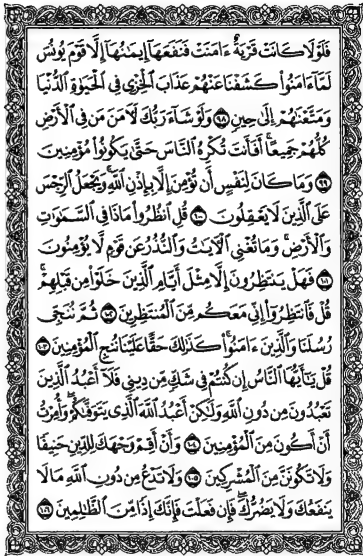 فَلَوْلَا كَانَتْ قَرْيَةٌ ءَامَنَتْ فَنَفَعَهَآ إِيمَٰنُهَآ إِلَّا قَوْمَ يُونُسَ
لَمَّآ ءَامَنُوا۟ كَشَفْنَا عَنْهُمْ عَذَابَ ٱلْخِزْىِ فِى ٱلْحَيَوٰةِ ٱلدُّنْيَا
وَمَتَّعْنَٰهُمْ إِلَىٰ حِينٍ ٩٨ وَلَوْ شَآءَ رَبُّكَ لَءَامَنَ مَن فِى ٱلْأَرْضِ
كُلُّهُمْ جَمِيعًا ۚ أَفَأَنتَ تُكْرِهُ ٱلنَّاسَ حَتَّىٰ يَكُونُوا۟ مُؤْمِنِينَ
٩٩ وَمَا كَانَ لِنَفْسٍ أَن تُؤْمِنَ إِلَّا بِإِذْنِ ٱللَّهِ ۚ وَيَجْعَلُ ٱلرِّجْسَ
عَلَى ٱلَّذِينَ لَا يَعْقِلُونَ ١٠٠ قُلِ ٱنظُرُوا۟ مَاذَا فِى ٱلسَّمَٰوَٰتِ
وَٱلْأَرْضِ ۚ وَمَا تُغْنِى ٱلْءَايَٰتُ وَٱلنُّذُرُ عَن قَوْمٍ لَّا يُؤْمِنُونَ
١٠١ فَهَلْ يَنتَظِرُونَ إِلَّا مِثْلَ أَيَّامِ ٱلَّذِينَ خَلَوْا۟ مِن قَبْلِهِمْ ۚ
قُلْ فَٱنتَظِرُوٓا۟ إِنِّى مَعَكُم مِّنَ ٱلْمُنتَظِرِينَ ١٠٢ ثُمَّ نُنَجِّى
رُسُلَنَا وَٱلَّذِينَ ءَامَنُوا۟ ۚ كَذَٰلِكَ حَقًّا عَلَيْنَا نُنجِ ٱلْمُؤْمِنِينَ ١٠٣
قُلْ يَٰٓأَيُّهَا ٱلنَّاسُ إِن كُنتُمْ فِى شَكٍّ مِّن دِينِى فَلَآ أَعْبُدُ ٱلَّذِينَ
تَعْبُدُونَ مِن دُونِ ٱللَّهِ وَلَٰكِنْ أَعْبُدُ ٱللَّهَ ٱلَّذِى يَتَوَفَّىٰكُمْ ۖ وَأُمِرْتُ
أَنْ أَكُونَ مِنَ ٱلْمُؤْمِنِينَ ١٠٤ وَأَنْ أَقِمْ وَجْهَكَ لِلدِّينِ حَنِيفًا
وَلَا تَكُونَنَّ مِنَ ٱلْمُشْرِكِينَ ١٠٥ وَلَا تَدْعُ مِن دُونِ ٱللَّهِ مَا لَا
يَنفَعُكَ وَلَا يَضُرُّكَ ۖ فَإِن فَعَلْتَ فَإِنَّكَ إِذًا مِّنَ ٱلظَّٰلِمِينَ ١٠٦